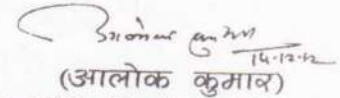 आलोक कुमार
14-12-12
(आलोक कुमार)